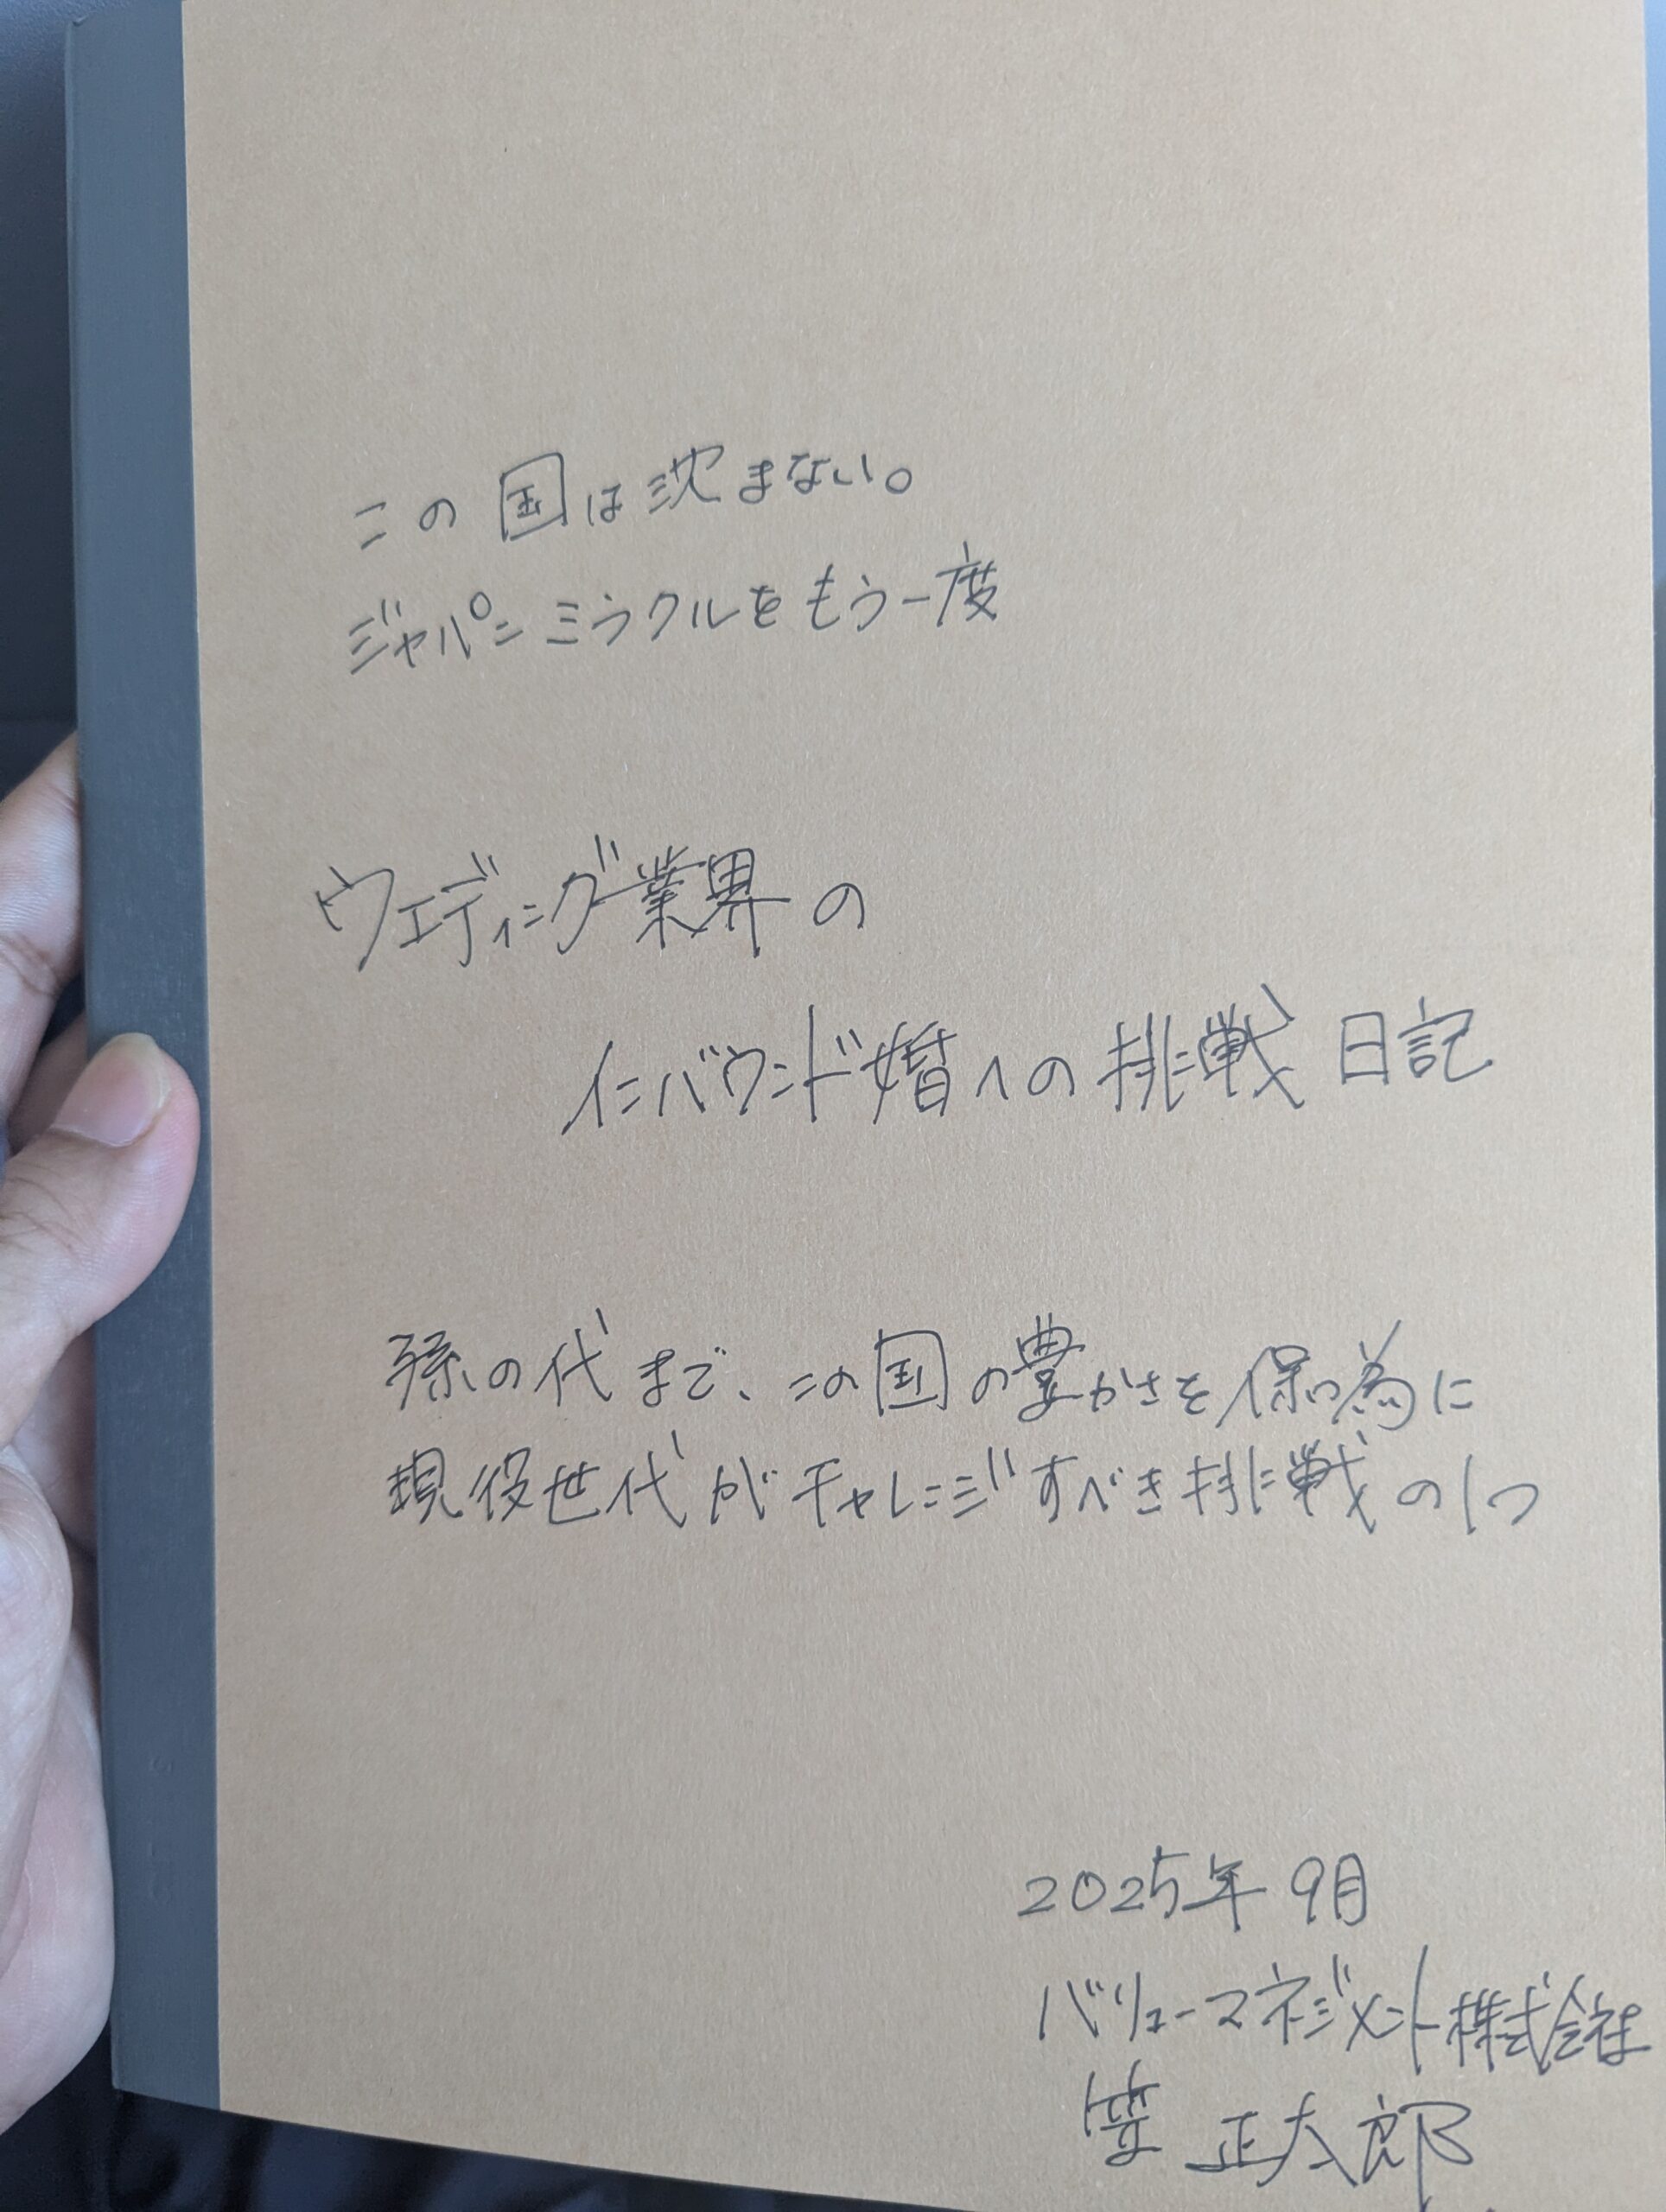 この国は沈まない。
ジャパンミラクルをもう一度
ウエディング業界の
インバウンド婚への挑戦日記
孫の代まで、この国の豊かさを保つ為に
現役世代がチャレンジすべき挑戦の1つ
2025年9月
バリューマネジメント株式会社
笠 正太郎